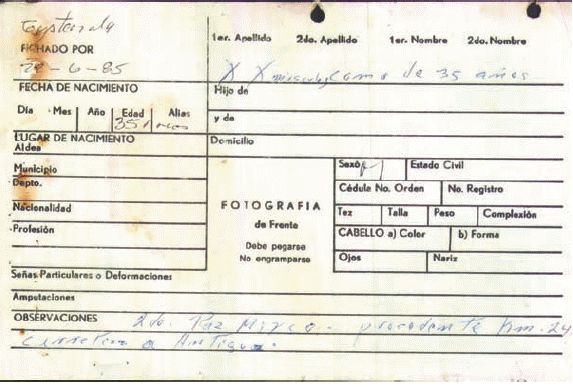 FICHADO POR
1er. Apellido 2do. Apellido 1er. Nombre 2do. Nombre
20-6-85
X X como de 35 años
FECHA DE NACIMIENTO Hijo de
Día Mes Año Edad Alias
35 años
y de
LUGAR DE NACIMIENTO Domicilio
Aldea
Municipio Sexo Estado Civil
Depto. Cédula No. Orden No. Registro
Nacionalidad FOTOGRAFIA Tez Talla Peso Complexión
Profesión de Frente CABELLO a) Color b) Forma
Debe pegarse
No engramparse Ojos Nariz
Señas Particulares o Deformaciones
Amputaciones
OBSERVACIONES 2do. Paz procedente Km. 24
carretera a Antigua.